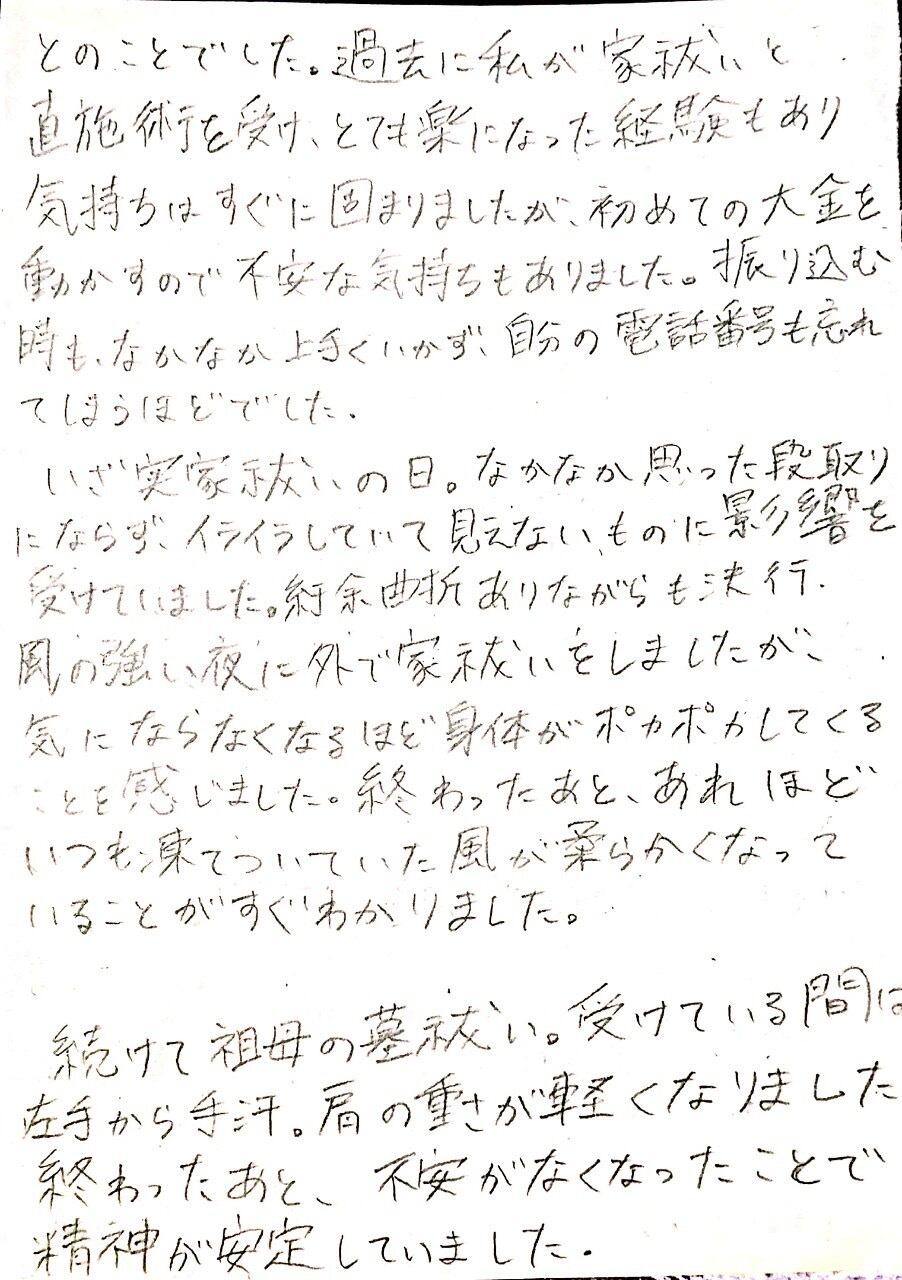 とのことでした。過去に私が家祓いと
直施術を受け、とても楽になった経験もあり
気持ちはすぐに固まりましたが、初めての大金を
動かすので不安な気持ちもありました。振り込む
時も、なかなか上手くいかず、自分の電話番号も忘れ
てしまうほどでした。
いざ実家祓いの日。なかなか思った段取り
にならず、イライラしていて見えないものに影響を
受けていました。紆余曲折ありながらも決行.
風の強い夜に外で家祓いをしましたが、
気にならなくなるほど身体がポカポカしてくる
ことを感じました。終わったあと、あれほど
いつも凍てついていた風が柔らかくなって
いることがすぐわかりました。
続けて祖母の墓祓い。受けている間は
左手から手汗。肩の重さが軽くなりました
終わったあと、不安がなくなったことで
精神が安定していました.